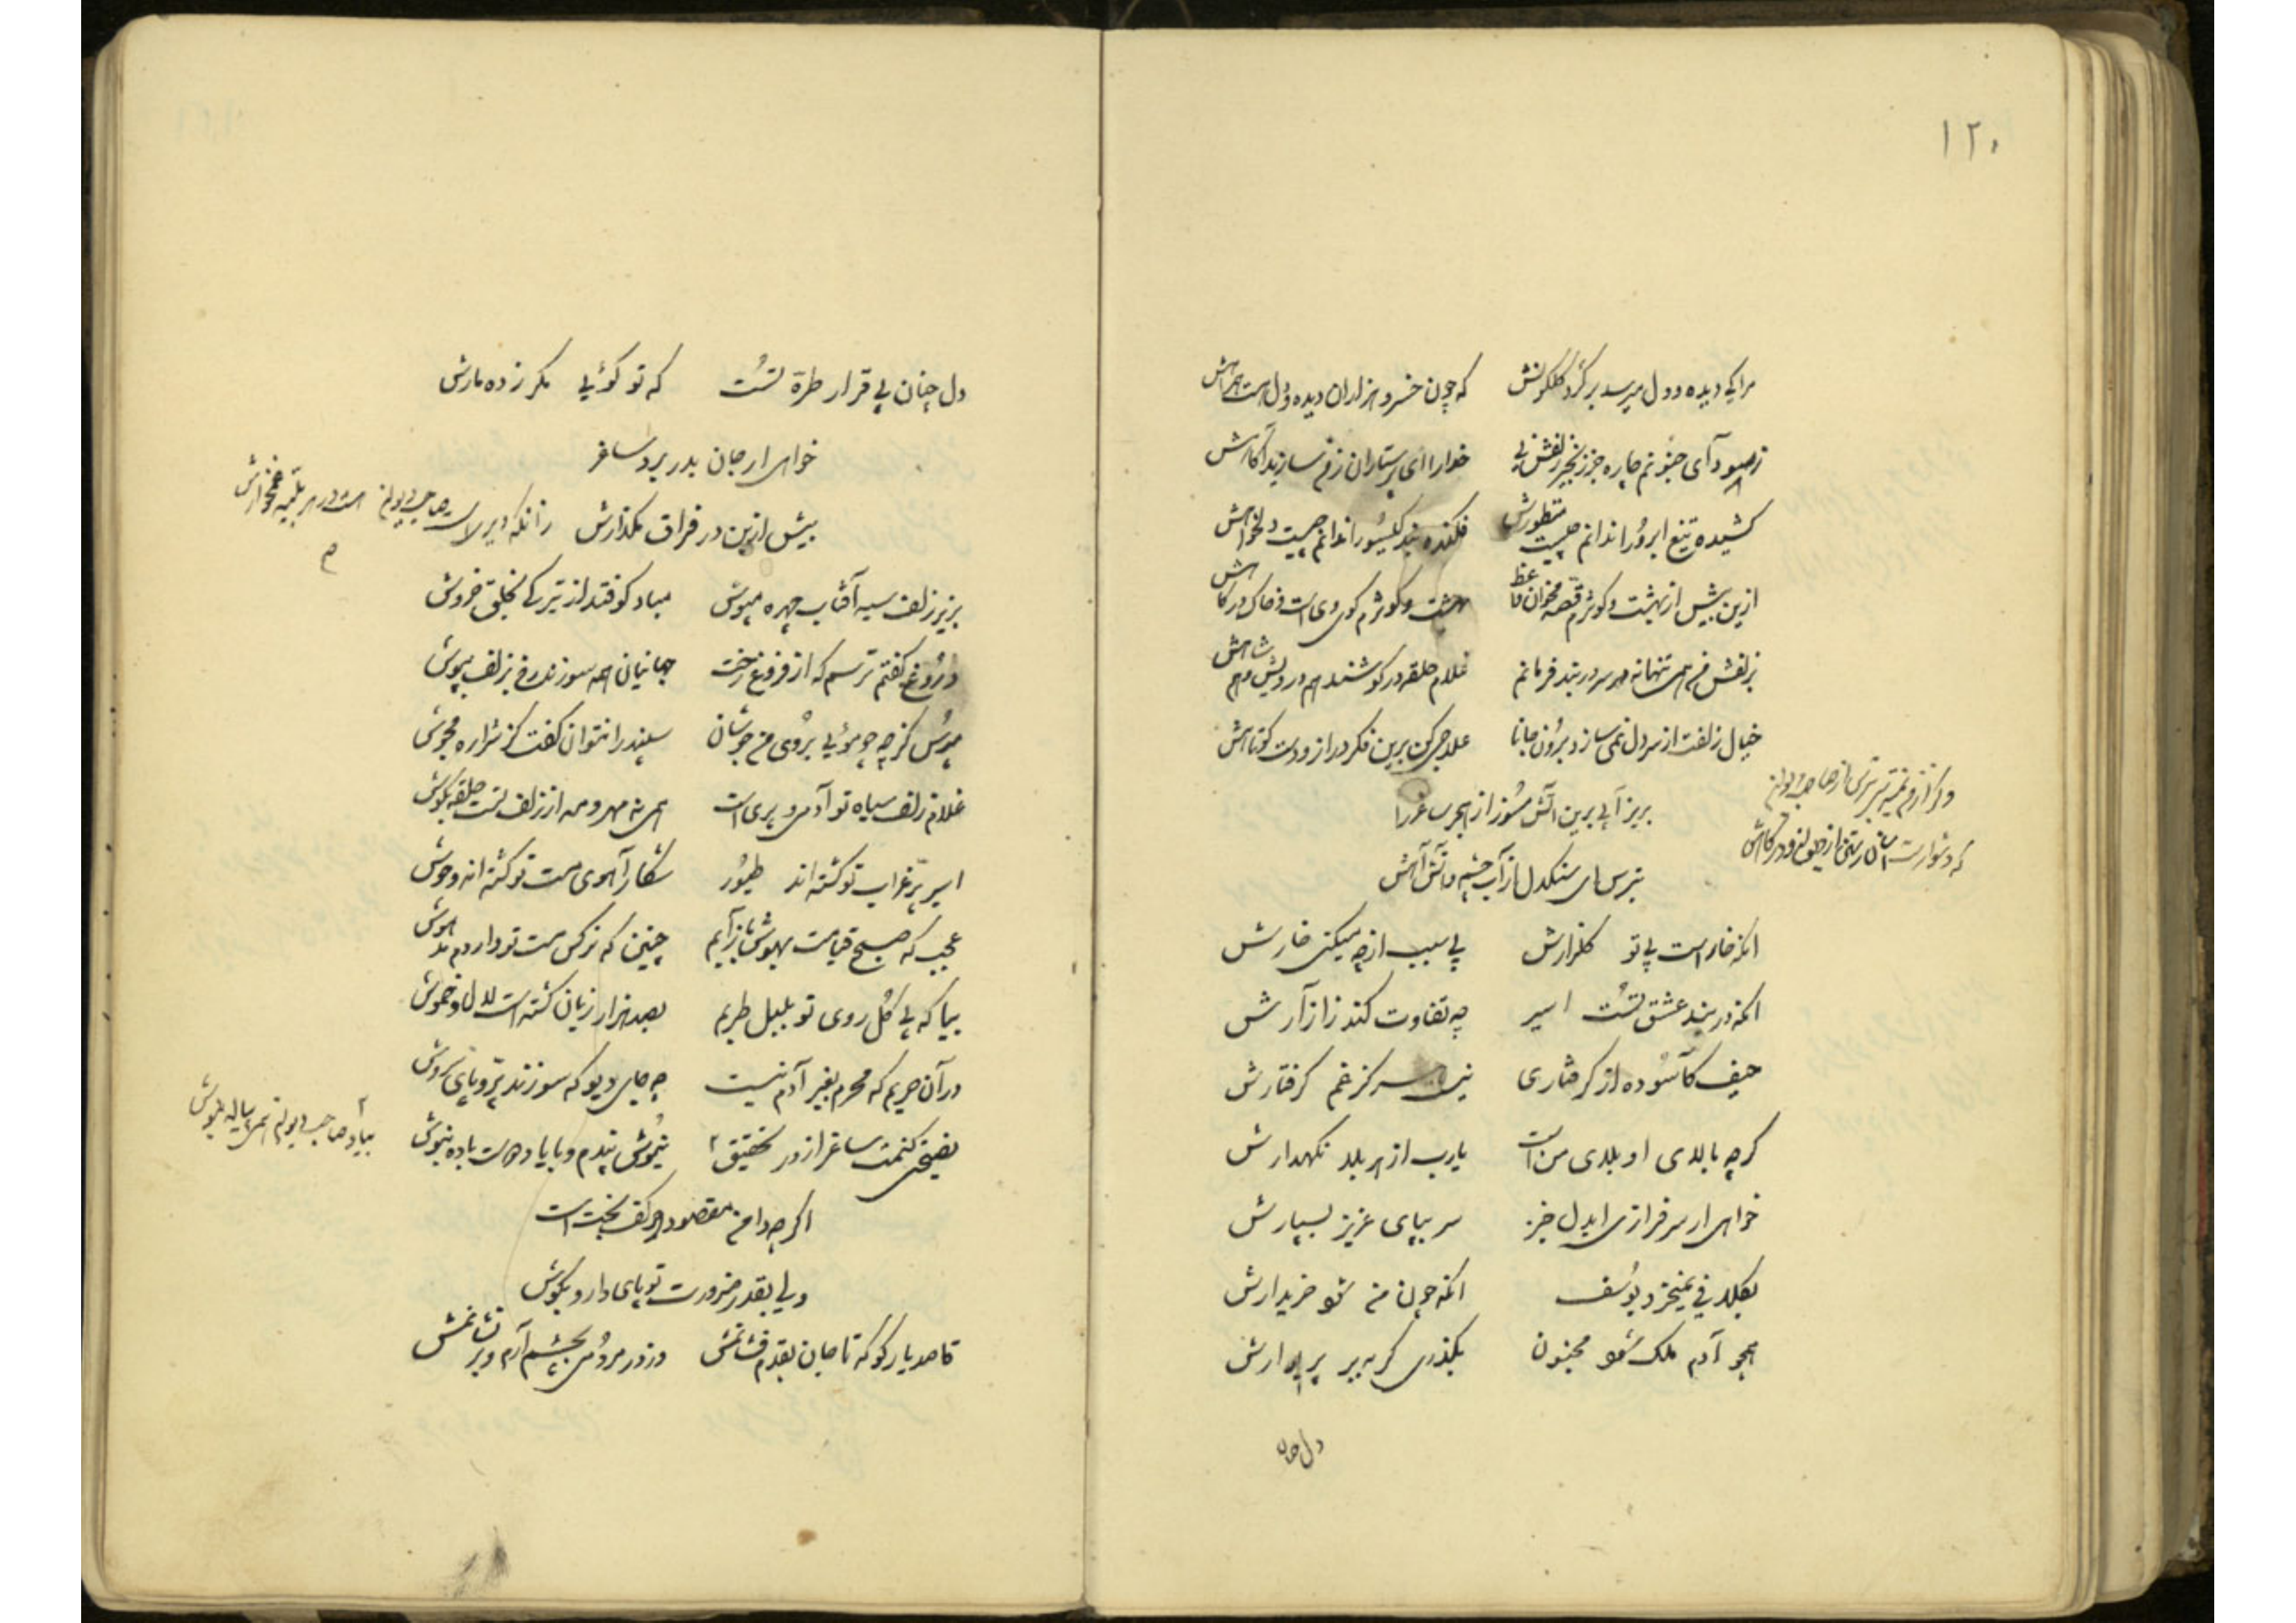 ۱۲۰
مرا یک دیده و دل میرسد بر گرد گلگونش که چون خسرو هزاران دیده و دل است همراهش
چاره جز زنجیر زلفش نی خدا را ای پرستاران ز من سازید آگاهش
کشیده تیغ ابرو را ندانم چیست منظورش فکنده بند گیسو را ندانم چیست دلخواهش
ازین بیش از بهشت و کوثرم قصه مخوان واعظ بهشت و کوثرم کوی وی است و خاک درگاهش
بزلفش من همی تنها نه سر در بند فرمانم غلام حلقه در گوشند هم درویش و هم شاهش
خیال زلفت از سر دل نمی‌سازد برون جانا علاجی کن برین فکر دراز و دست کوتاهش
بریز آبی برین آتش مسوز از هجر ساغر را
بترس ای سنگدل از آب چشم و آتش آهش
انکه خار است بی تو گلزارش بی سبب از چه میکنی خارش
انکه در بند عشق تست اسیر چه تفاوت کند ز آزارش
حیف کآسوده از گرفتاری نیست سر کز غم گرفتارش
گرچه بالای او بلای من است یارب از هر بلا نگهدارش
خواهی ار سرفرازی ایدل خیز سر بپای عزیز بسپارش
بکلافی نمیخرد یوسف انکه چون من شو خریدارش
همچو آدم ملک شود مجنون بگذری گر به بر پریوارش
دل چنان
دل چنان بی قرار طره تست که تو گوئی مگر زده مارش
خواهی ار جان بدر برد ساغر
بیش ازین در فراق مگذارش
بزیر زلف سیه آفتاب چهره مپوش مباد کوفتد از تیرگی بخلق خروش
دروغ گفتم ترسم که از فروغ رخت جهانیان همه سوزند رخ بزلف بپوش
مپوش گرچه چو موئی بروی من جوشان سپند را نتوان گفت کز شراره مجوش
غلام زلف سیاه تو آدمی و پری است همی نه مهر و مه از زلف تست حلقه بگوش
اسیر پر غراب تو گشته‌اند طیور شکار آهوی مست تو گشته‌اند وحوش
عجب که صبح قیامت بهوش باز آیم چنین که نرگس مست تو داردم مدهوش
بیا که بی گل روی تو بلبل طربم بصد هزار زبان گشته است لال و خموش
در آن حریم که محرم بغیر آدم نیست چه جای دیو که سوزند پر و پای سروش
نصیحتی کنمت ساغر از در تحقیق نیوش پندم و با یاد دوست باده بنوش
اگرچه دامن مقصود در کف بخت است
ولی بقدر ضرورت تو پای دار و بکوش
قاصد یار کو که تا جان بقدم فشانمش وز در مردمی بچشم آرم و بر نشانمش